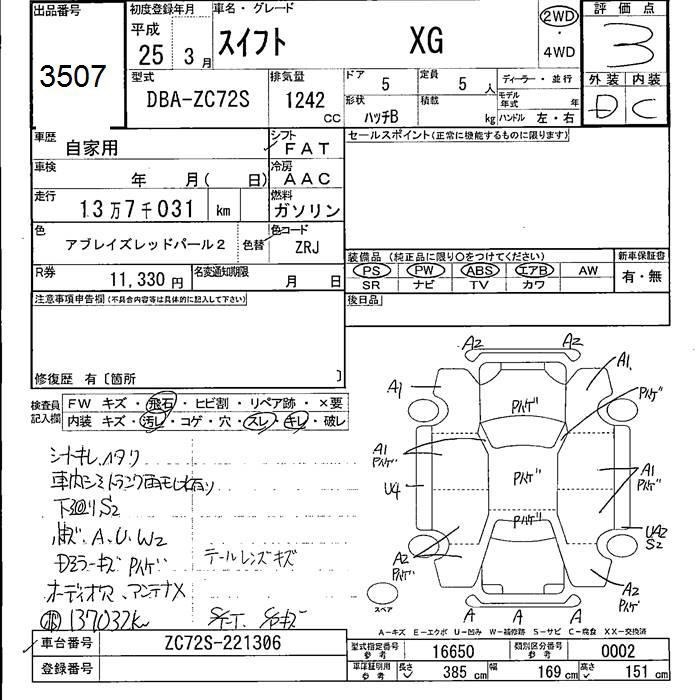 出品番号
3507
初度登録年月
平成
25 3月
車名・グレード
スイフト XG
2WD
・
4WD
評価点
3
外装 内装
D C
型式
DBA-ZC72S
排気量
1242
CC
ドア
5
定員
5 人
形状
ハッチB
積載
kg
ディーラー・並行
モデル年式 年
ハンドル 左・右
車歴
自家用
シフト
FAT
車検
年 月( 日)
冷房
AAC
走行
13万7千031 km
燃料
ガソリン
色
アブレイズレッドパール2
色替
色コード
ZRJ
R券
11,330円
名変通知期限
月 日
セールスポイント(正常に機能するものに限ります)
装備品(純正品に限り〇をつけてください)
PS PW ABS エアB AW
SR ナビ TV カワ
新車保証書
有・無
後日品
注意事項申告欄(不具合内容等は具体的に記入して下さい)
修復歴 有〔箇所 〕
検査員
記入欄
FW キズ・飛石・ヒビ割・リペア跡・×要
内装 キズ・汚レ・コゲ・穴・スレ・キレ・破レ
シートキレ、ハタリ
下廻りS2
A、U、W2
テールレンズキズ
アンテナX
137032km
A2 A2
A1 A1
A1 A1
U4
UA2
S2
A2 A2
A A A
スペア
A-キズ E-エクボ U-凹み W-補修跡 S-サビ C-腐食 XX-交換済
車台番号
ZC72S-221306
登録番号
型式指定番号
参考
16650
類別区分番号
参考
0002
車庫証明用
参考
長さ 385 cm
幅 169 cm
高さ 151 cm